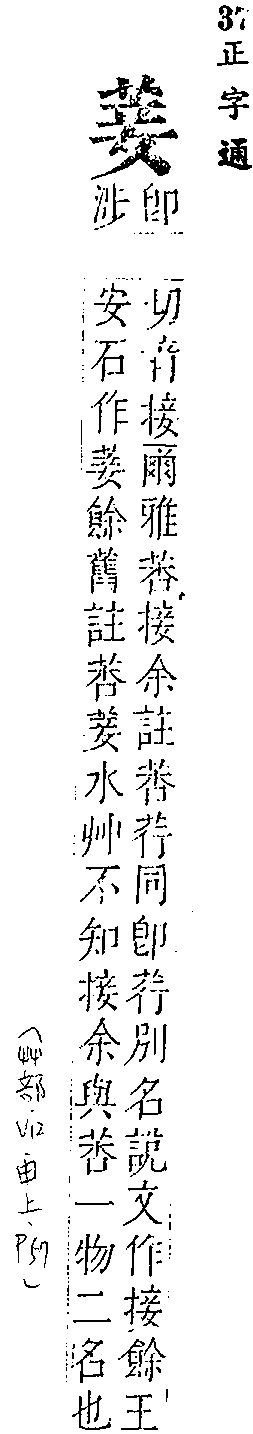 37正字通
菨
卽
涉
切音接爾雅莕接余註莕荇同卽荇別名說文作接餘王
安石作菨餘舊註莕菨水艸不知接余與莕一物二名也
(艸部 V12 上、